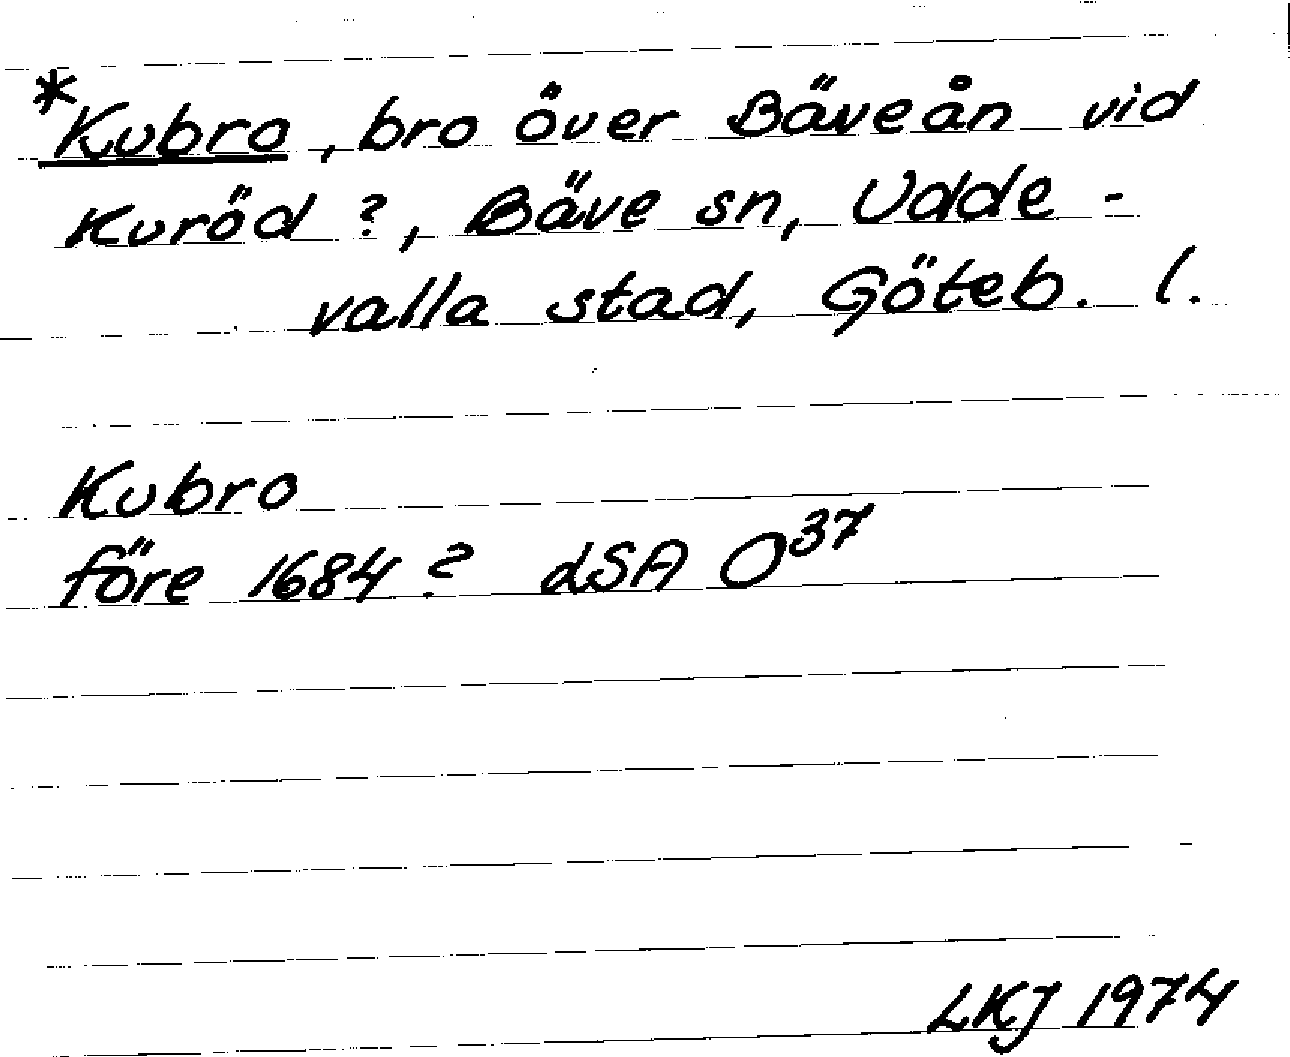 *Kubro, bro över Bäveån vid
Kuröd ?, Bäve sn, Udde-
valla stad, Göteb. l.
Kubro
före 1684? dSA O³⁷
LKJ 1974